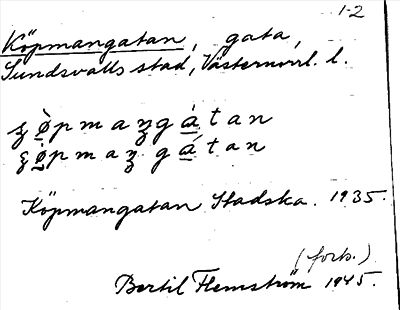 1-2
Köpmangatan, gata,
Sundsvalls stad, Västernorrl. l.
ʂø̀pmaŋgátan
ʂø̀pmaŋgátan
Köpmangatan Stadska. 1935.
(forts.)
Bertil Flemström 1945.